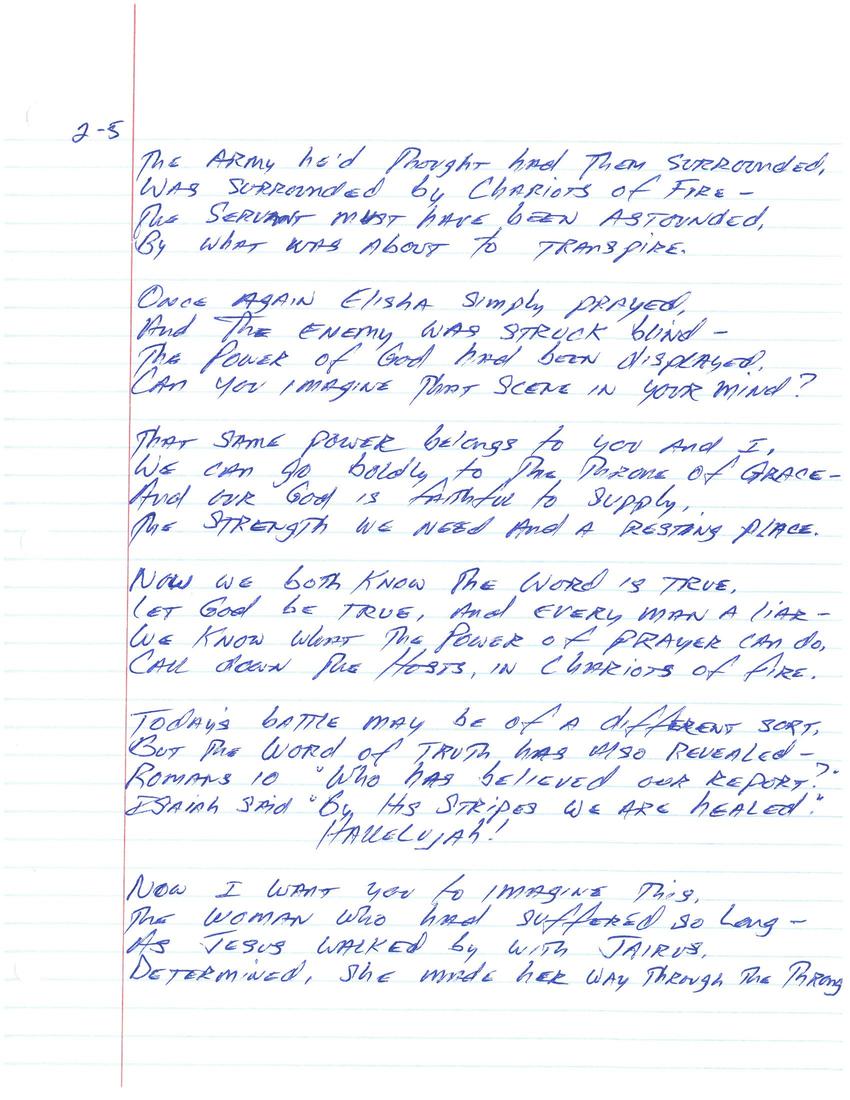 2-5
The Army he'd thought had them surrounded,
Was surrounded by Chariots of Fire -
The Servant must have been astounded,
By what was about to transpire.
Once again Elisha simply prayed,
And the enemy was struck blind -
The Power of God had been displayed,
Can you imagine that scene in your mind?
That same power belongs to you and I,
We can go boldly to the Throne of Grace -
And our God is faithful to supply,
The strength we need and a resting place.
Now we both know the Word is true,
Let God be true, and every man a liar -
We know what the Power of prayer can do,
Call down the Hosts, in Chariots of fire.
Today's battle may be of a different sort,
But the Word of Truth has also revealed -
Romans 10 "Who has believed our report?"
Isaiah said "By His Stripes we are healed."
Hallelujah!
Now I want you to imagine this,
The woman who had suffered so long -
As Jesus walked by with Jairus,
Determined, she made her way through the throng